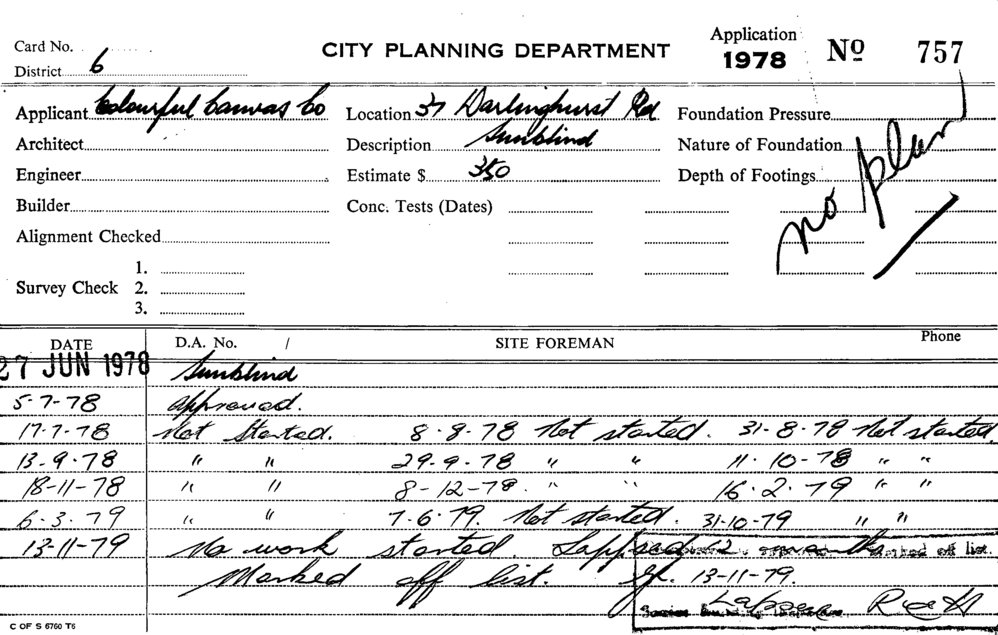 Card No. Application
CITY PLANNING DEPARTMENT 1978 No 757
District 6
Applicant Colourful Canvas Co Location 37 Darlinghurst Rd Foundation Pressure
Architect Description Sunblind Nature of Foundation
Engineer Estimate $ 350 Depth of Footings
Builder Conc. Tests (Dates) no plan
Alignment Checked
1.
Survey Check 2.
3.
DATE D.A. No. / SITE FOREMAN Phone
27 JUN 1978 Sunblind
5-7-78 approved.
17-7-78 Not Started. 8-8-78 Not started. 31-8-78 Not started.
13-9-78 " " 29-9-78 " " 11-10-78 " "
18-11-78 " " 8-12-78. " " 16.2.79 " "
6.3.79 " " 7.6.79. Not started. 31-10-79 " "
13-11-79 No work started. Lapsed 12 months marked off list.
Marked off list. 13-11-79.
Lapsed
C OF S 6760 T6